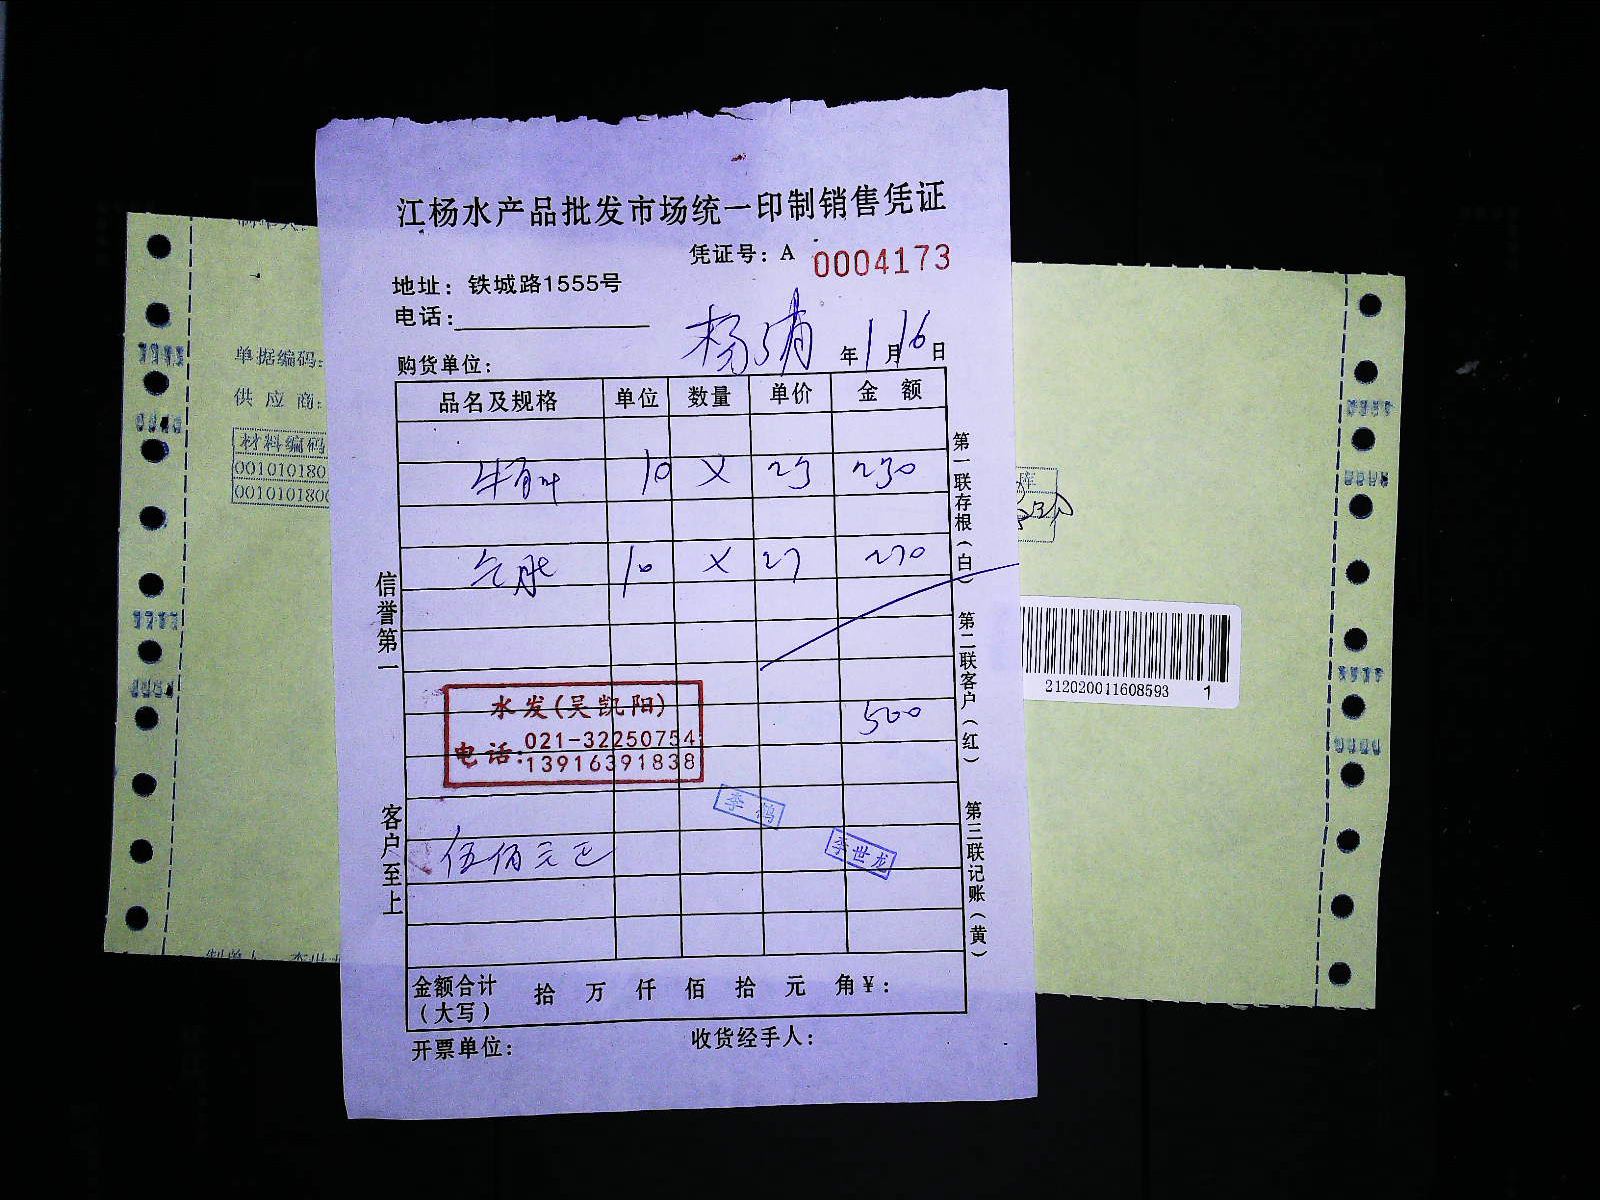 江杨水产品批发市场统一印制销售凭证
凭证号：A 0004173
地址：铁城路1555号
电话：
购货单位： 年1月16日
品名及规格 单位 数量 单价 金额
10 X 23 230
10 X 27 270
500
水发(吴凯阳)
电话:021-32250754
13916391838
李鹤
李世龙
伍佰元正
金额合计（大写） 拾 万 仟 佰 拾 元 角 ¥：
开票单位： 收货经手人：
信誉第一
客户至上
第一联存根(白)
第二联客户(红)
第三联记账(黄)
单据编码:
供应商:
材料编码
001010180
00101018
库
212020011608593 1